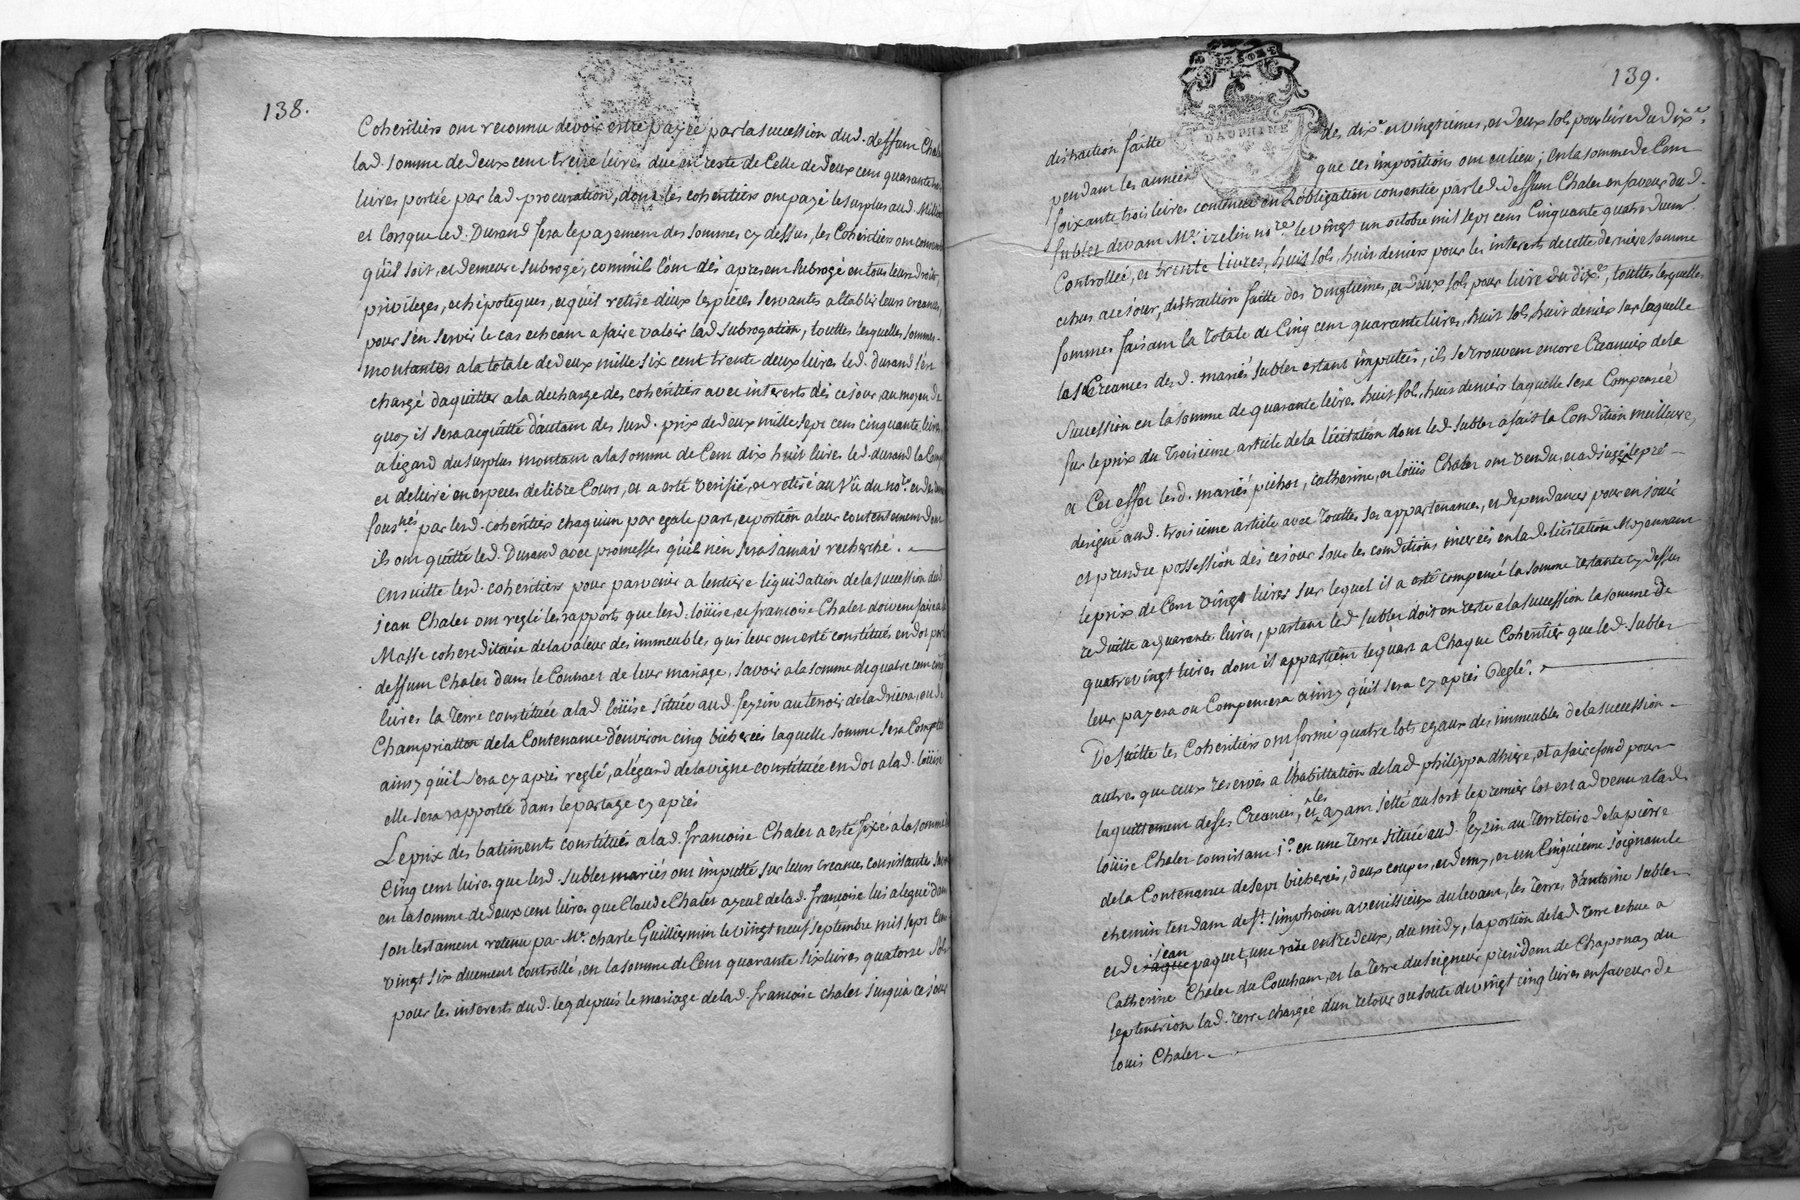 138.
Coheritiers ont reconnu devoir estre payée par la succession dud. deffunt Chalet
lad. somme de deux cent treize livres due en reste de Celle de deux cent quarante
livres portée par lad. procuration, dont les coheritiers ont payé le surplus aud.
et lorsque led. Durand fera le payement des sommes cy dessus, les Coheritiers ont consenti
qu'il soit, et demeure subrogé, comm'ils l'ont dès apresent subrogé en tous leurs droits,
privileges, et hipoteques, et qu'il retire d'eux les pièces servantes a établir leurs creances,
pour s'en servir le cas echeant a faire valoir lad. subrogation, touttes lesquelles sommes
montantes a la totale de deux mille six cent trente deux livres led. durand s'est
chargé daquitter a la decharge des coheritiers avec interests dès ce jour, au moyen de
quoy il sera acquitté d'autant des susd. prix de deux mille sept cens cinquante livres,
a légard du surplus montant a la somme de Cent dix huit livres led. durand la
et delivré en especes de libre Cours, et a esté verifié, et retiré au vû du nore. et
sousnés par lesd. coheritiers chaqu'un par egale part, et portion a leur contentement dont
ils ont quitté led. Durand avec promesses qu'il n'en sera jamais recherché.
ensuitte lesd. coheritiers pour parvenir a lentiere liquidation de la succession dud.
jean Chalet ont reglé les rapports que lesd. loüise, et francoise Chalet doivent faire a la
Masse cohereditaire de la valeur des immeubles, qui leur ont esté constitués en dot par led.
deffunt Chalet dans le Contract de leur mariage, savoir a la somme de quatre cent cinq
livres la terre constituée a lad. loüise située aud. feyzin au terroir de la drieva, ou de
Champriatton de la Contenance d'environ cinq bicherées laquelle somme sera Comptée
ainsy qu'il sera cy après reglé, a légard de la vigne constituée en dot a lad. loüise
elle sera rapportée dans le partage cy après
Le prix des batiments constitués a lad. francoise Chalet a esté fixé a la somme de
Cinq cent livres que lesd. Sublet mariés ont imputté sur leurs creances consistantes
en la somme de deux cent livres que Claude Chalet ayeul de lad. françoise lui a legué dans
son testament retenu par Me. charle Guilleymin le vingt neuf septembre mil sept cent
vingt six duement controllé, en la somme de Cent quarante six livres quatorze sols
pour les interests dud. leg depuis le mariage de lad. francoise chalet jusqu'a ce jour
139.
DAUPHINÉ
distraction faitte de, dixe. et vingtiemes, et deux sols pour livre du dixe.
pendant les années que ces impositions ont eu lieu; en la somme de Cent
soixante trois livres contenue en l'obligation consentie par led. deffunt Chalet en faveur dud.
Sublet devant Me. izelin nore. le vingt un octobre mil sept cens Cinquante quatre duemt.
Controllée, et trente livres, huit sols, huit deniers pour les interests de cette derniere somme
echus a ce jour, distraction faitte des vingtiemes, et deux sols pour livre du dixe, touttes lesquelles
sommes faisant la totale de Cinq cent quarante livres, huit sols, huit deniers sur laquelle
les Creances desd. mariés Sublet estant imputtées, ils se trouvent encore Creanciers de la
Succession en la somme de quarante livres huit sols, huit deniers laquelle sera Compensée
sur le prix du Troisieme article de la licitation dont led. Sublet a fait la Condition meilleure,
a Cet effet lesd. mariés pichot, Catherine, et loüis Chalet ont vendu, et adjugé le pré
designé aud. troisieme article avec touttes ses appartenances, et dependances pour en joüir
et prendre possession dès ce jour sous les conditions inserées en lad. licitation Moyennant
le prix de Cent vingt livres sur lequel il a esté compensé la somme restante cy dessus
reduitte a quarante livres, partant led. Sublet doit en reste a la succession la somme de
quatre vingt livres dont il appartient le quart a Chaque Coheritier que led. Sublet
leur payera ou Compensera ainsy qu'il sera cy après Reglé.
De suitte les Coheritiers ont formé quatre lots egaux des immeubles de la succession
autres que ceux reservés a l'habittation de lad. philippa dhiere, et a faire fond pour
laquittement desses Creances, et les ayant jetté au sort le premier lot est advenu a lad.
loüise Chalet consistant 1°. en une Terre située aud. feyzin au Territoire de la pierre
de la Contenance de sept bicherées, deux coupes, et demy, et un Cinquieme joignant le
chemin tendant de st. simphorien a venissieux du levant, les Terres d'antoine Sublet
et de jean paquet, une raie entredeux, du midy, la portion de lad. terre echue a
Catherine Chalet du Couchant, et la Terre du seigneur president de Chaponay du
septentrion lad. terre chargée d'un retour ou soute de vingt cinq livres en faveur de
louis Chalet.